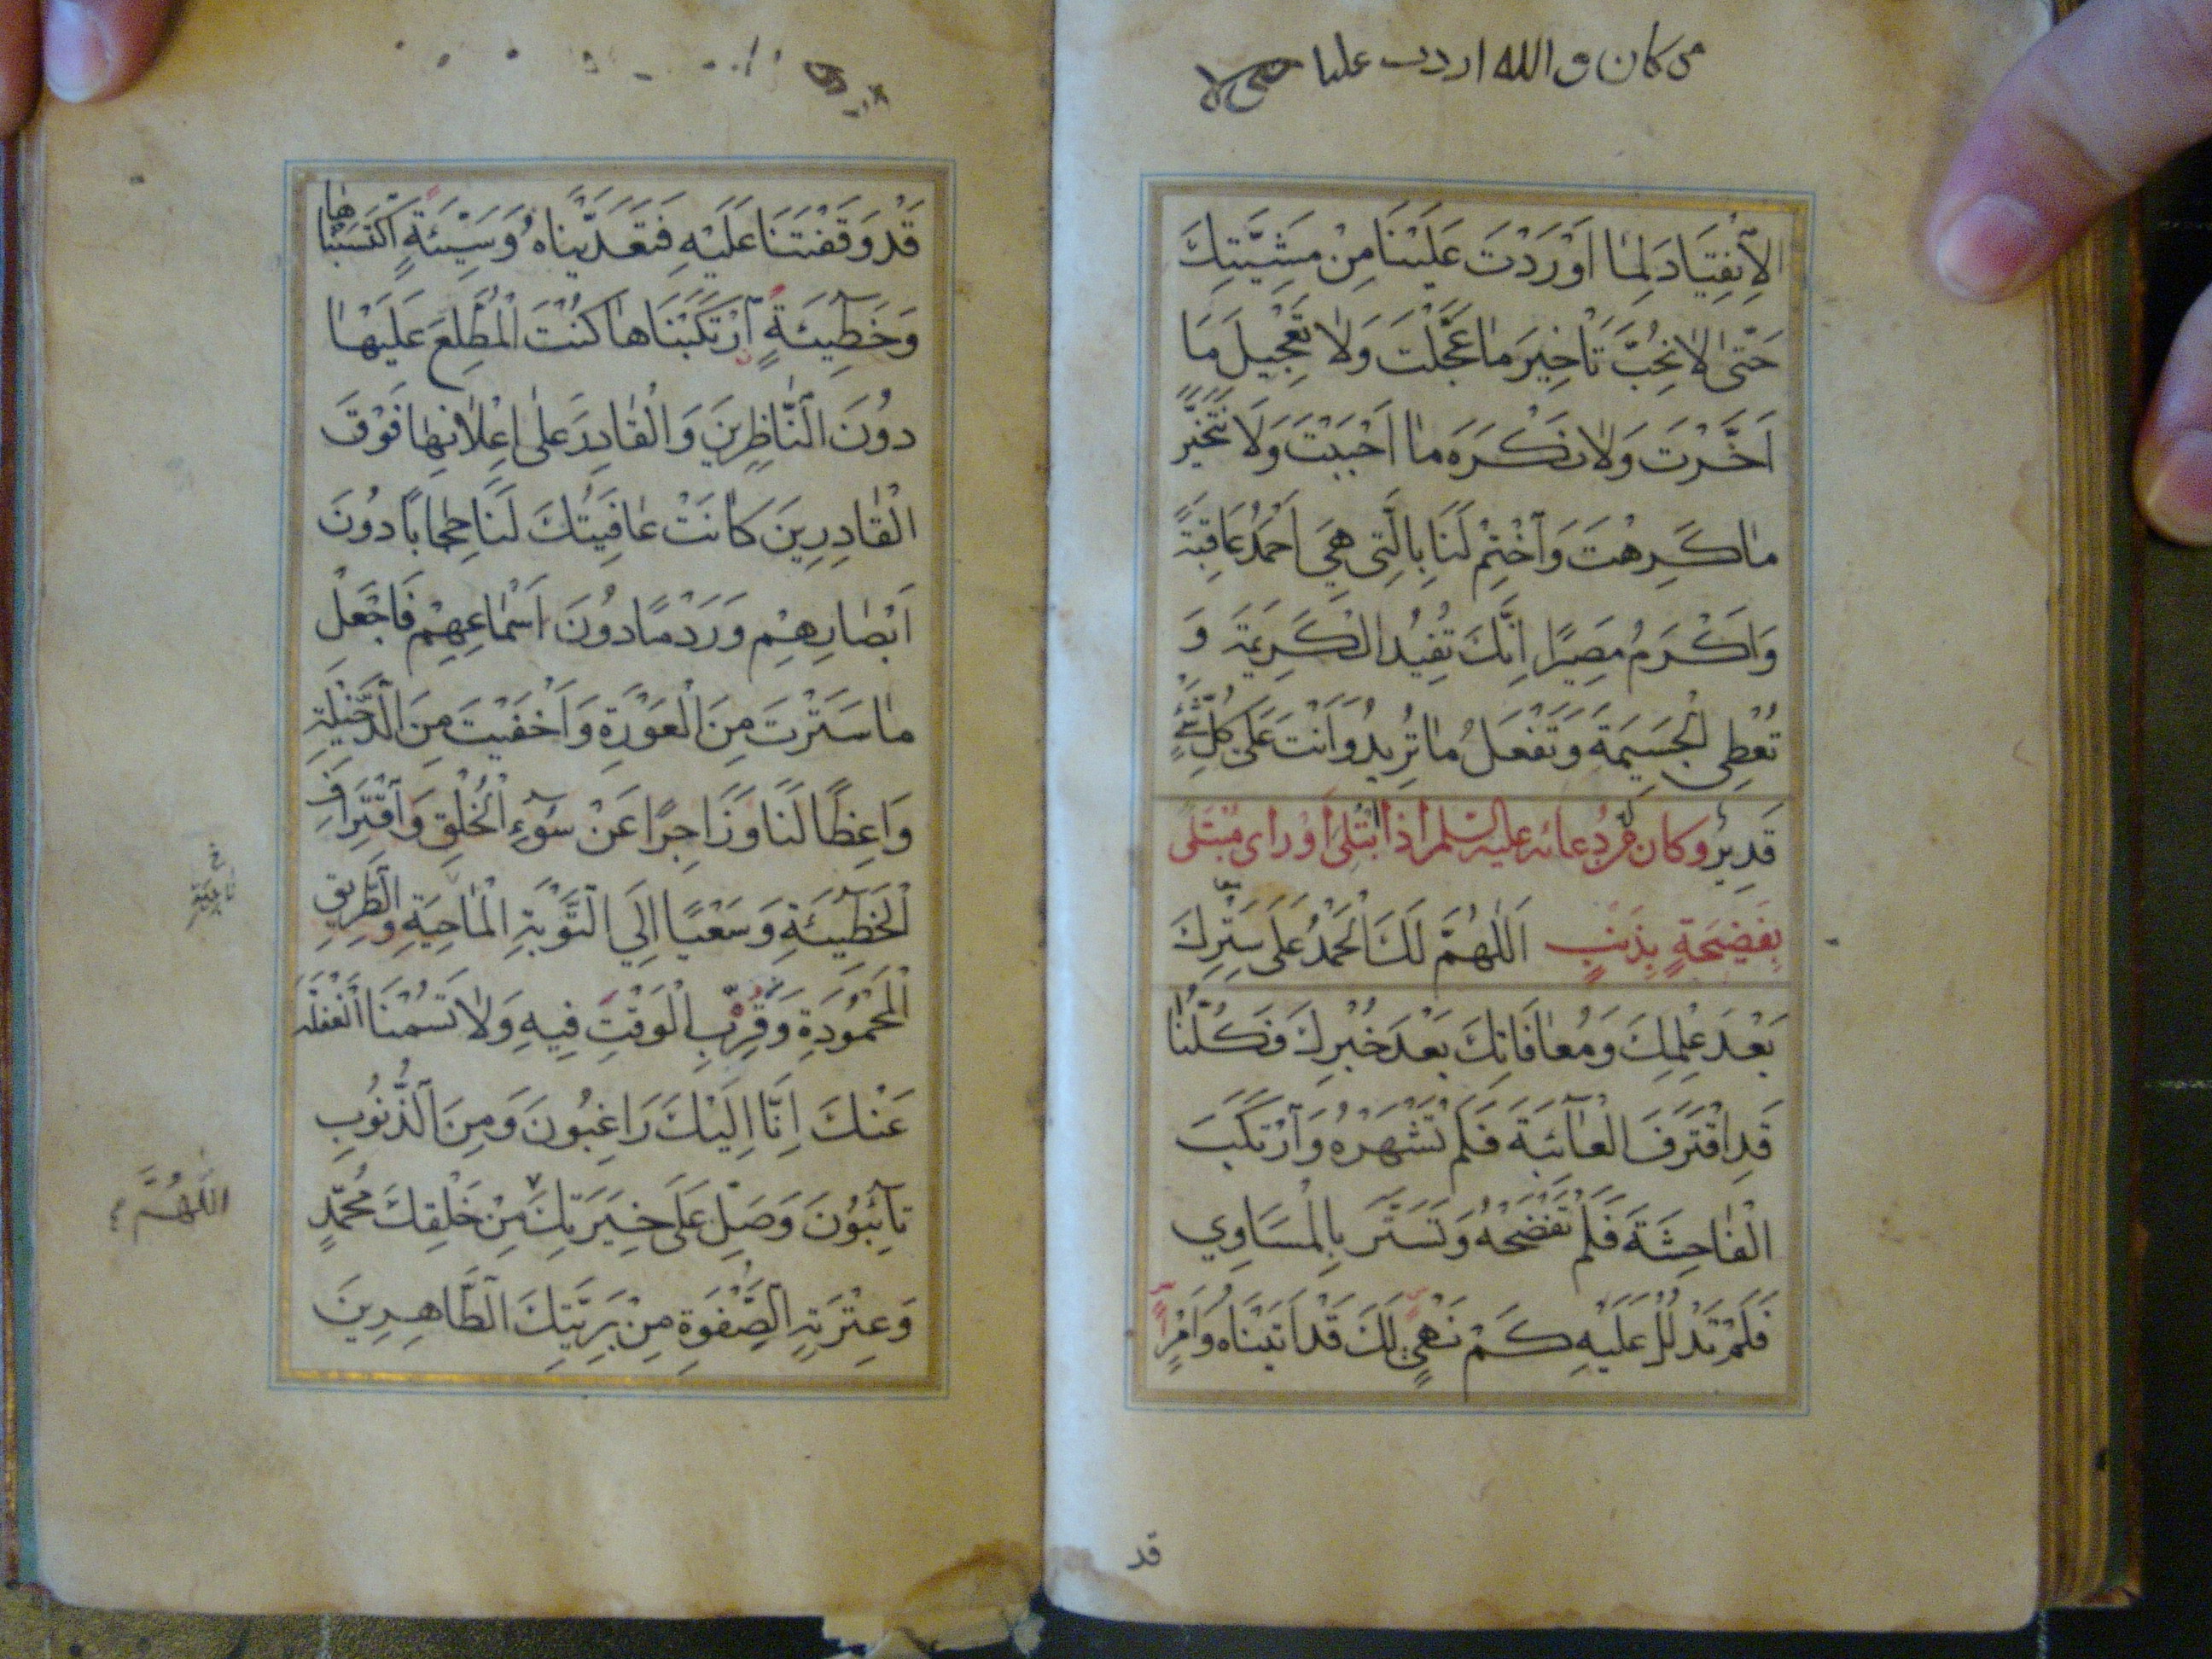 من كان والله اردت علينا
الْاِنْقِيَادَ لِمٰا اَوْرَدْتَ عَلَيْنَا مِنْ مَشِيَّتِكَ
حَتّٰى لاٰ نُحِبَّ تَأْخِيرَ مٰا عَجَّلْتَ وَلاٰ تَعْجِيلَ مَا
اَخَّرْتَ وَلاٰ نَكْرَهَ مٰا اَحْبَبْتَ وَلَا نَتَخَيَّرَ
مٰا كَرِهْتَ وَاخْتِمْ لَنَا بِالَّتِى هِيَ اَحْمَدُ عَاقِبَةً
وَاَكْرَمُ مَصِيرًا اِنَّكَ تُفِيدُ الْكَرِيمَةَ وَ
تُعْطِى الْجَسِيمَةَ وَتَفْعَلُ مٰا تُرِيدُ وَاَنْتَ عَلٰى كُلِّ شَيْءٍ
قَدِيرٌ وكان من دُعائه عليه السّلم اذا ابْتُلِىَ اَوْ رَاى مُبْتَلًى
بِفَضِيحَةٍ بِذَنْبٍ اَللّٰهُمَّ لَكَ الْحَمْدُ عَلٰى سِتْرِكَ
بَعْدَ عِلْمِكَ وَمُعٰافَاتِكَ بَعْدَ خُبْرِكَ فَكُلُّنٰا
قَدِ اقْتَرَفَ الْعٰآئِبَةَ فَلَمْ تَشْهَرْهُ وَارْتَكَبَ
الْفٰاحِشَةَ فَلَمْ تَفْضَحْهُ وَتَسَتَّرَ بِالْمَسَاوِي
فَلَمْ تَدْلُلْ عَلَيْهِ كَمْ نَهْيٍ لَكَ قَدْ اَتَيْنَاهُ وَاَمْرٍ
قد
قَدْ وَقَفْتَنَا عَلَيْهِ فَتَعَدَّيْنَاهُ وَسَيِّئَةٍ اكْتَسَبْنٰاهٰا
وَخَطِيئَةٍ ارْتَكَبْنَاهٰا كُنْتَ الْمُطَّلِعَ عَلَيْهٰا
دُونَ النّٰاظِرِينَ وَالْقٰادِرَ عَلٰى اِعْلاٰنِهٰا فَوْقَ
الْقٰادِرِينَ كٰانَتْ عٰافِيَتُكَ لَنَا حِجٰابًا دُونَ
اَبْصٰارِهِمْ وَرَدْمًا دُونَ اَسْمٰاعِهِمْ فَاجْعَلْ
مٰا سَتَرْتَ مِنَ الْعَوْرَةِ وَاَخْفَيْتَ مِنَ الدَّخِيلَةِ
وَاعِظًا لَنَا وَزَاجِرًا عَنْ سُوٓءِ الْخُلْقِ وَاقْتِرَافِ
الْخَطِيئَةِ وَسَعْيًا اِلَى التَّوْبَةِ الْمٰاحِيَةِ وَالطَّرِيقِ
الْمَحْمُودَةِ وَقَرِّبِ الْوَقْتَ فِيهِ وَلاٰ تَسُمْنَا الْغَفْلَةَ
عَنْكَ اِنَّا اِلَيْكَ رَاغِبُونَ وَمِنَ الذُّنُوبِ
تٰآئِبُونَ وَصَلِّ عَلٰى خِيَرَتِكَ مِنْ خَلْقِكَ مُحَمَّدٍ
وَعِتْرَتِهِ الصِّفْوَةِ مِنْ بَرِيَّتِكَ الطَّاهِرِينَ
اللّٰهُمَّ